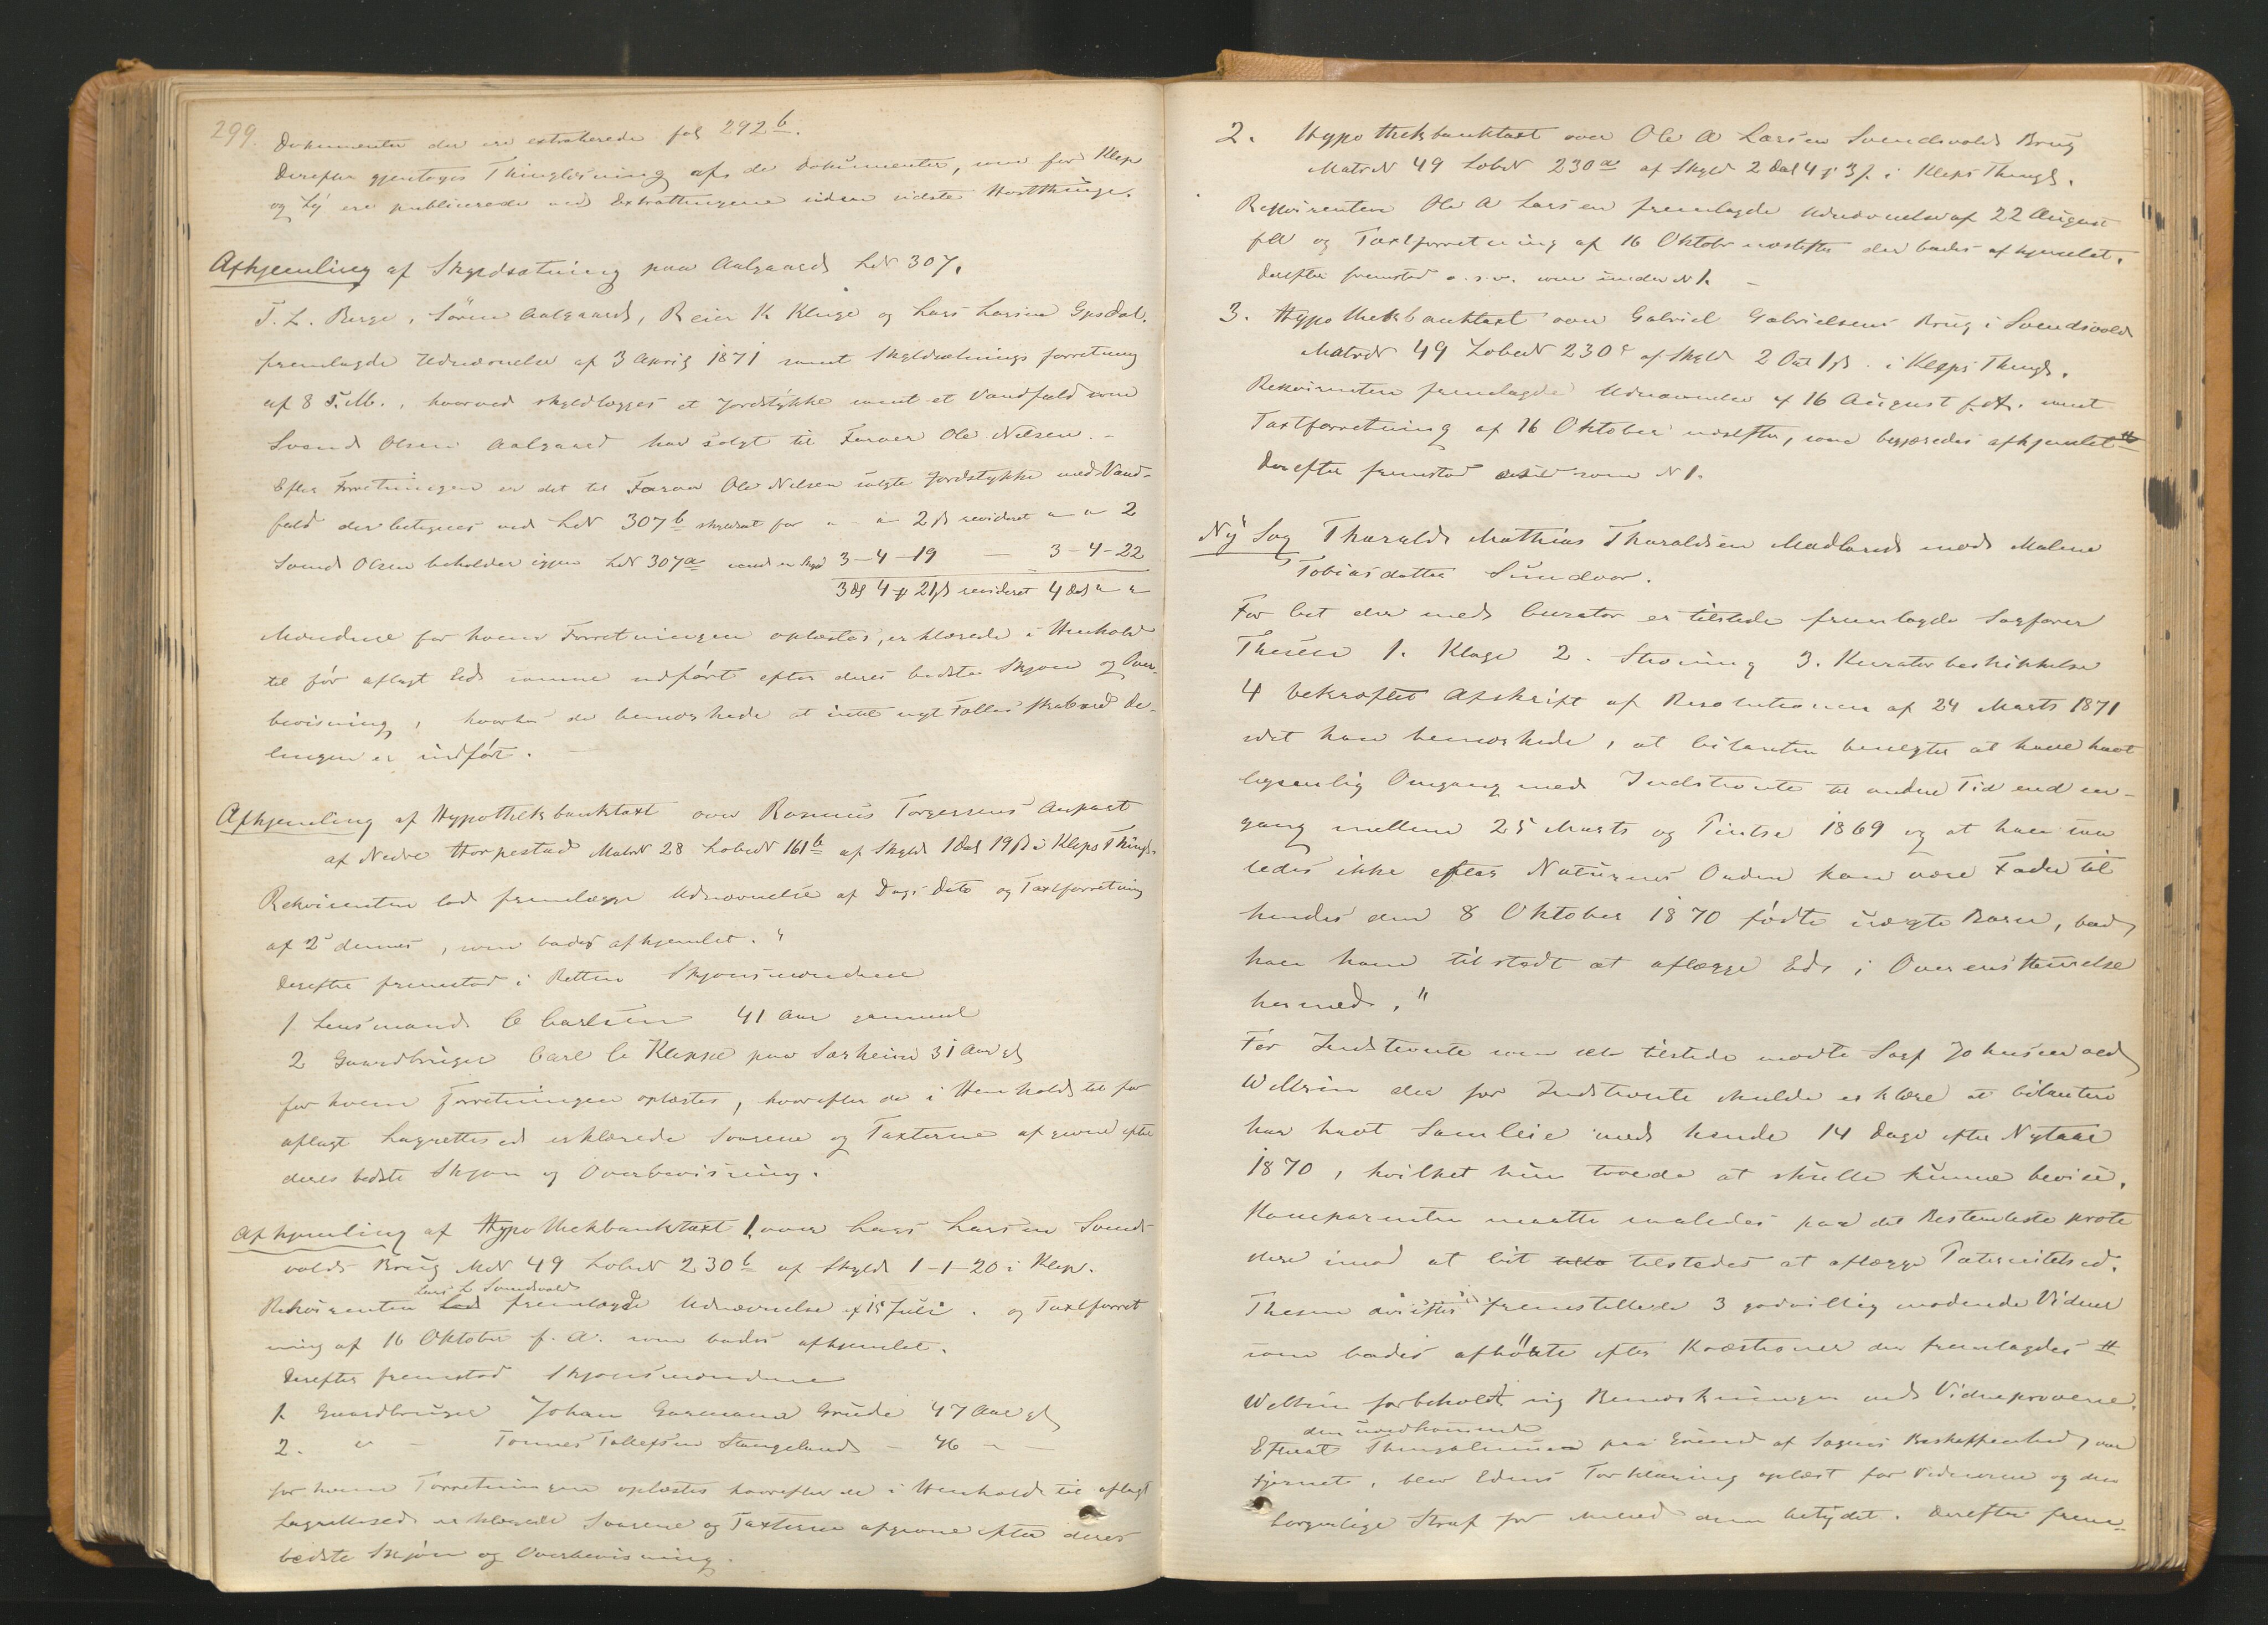 299.
Dokumenter der ere extraherede fol 292 b.
Derefter gjentoges Thinglæsning af de Dokumenter, som for Klep
og Ly ere publicerede ved Extrathingene siden sidste Høstthinge.
Afhjemling af Skyldsætning paa Aalgaard LN 307.
T. L. Berge, Sören Aalgaard, Reier K. Kluge og Lars Larsen Gjesdal
fremlagde Udnævnelse af 3 April 1871 samt Skyldsætnings forretning
af 8 s. M., hvorved skyldlægges et Jordstykke samt et Vandfald som
Svend Olsen Aalgaard har solgt til Farver Ole Nilsen. -
Efter Forretningen er det til Farver Ole Nilsen solgte Jordstykke med Vand-
fald der betegnes ved LN 307 b skyldsat for " " 2 ß revideret " " 2
Svend Olsen beholder igjen LN 307 a 3-4-19 — 3-4-22
3 D 4 21 ß revideret 4 Dal " "
Mændene for hvem Forretningen oplæstes, erklærede i Henhold
til för aflagt Eed samme udfört efter deres bedste Skjøn og Over-
bevisning, hvorhos de bemærkede at intet nyt Fællesskab ved De-
lingen er indført.
Afhjemling af Hypothekbanktaxt over Rasmus Torgersens Anpart
af Nedre Horpestad MatrN 28 LøbeN 161 b af Skyld 1 Dal 19 ß i Kleps Thingl.
Rekvirenten lod fremlægge Udnævnelse af Dags Dato og Taxtforretning
af 2 dennes, som bades afhjemlet. "
Derefter fremstod i Retten Skjønsmændene
1 Lensmand C Carlsen 41 Aar gammel
2 Gaardbruger Carl C Kleppe paa Særheim 31 Aar gl
for hvem Forretningen oplæstes, hvorefter de i Henhold til før
aflagt Lagretteseed erklærede Svarene og Taxterne afgivne efter
deres bedste Skjøn og Overbevisning.
Afhjemling af Hypothekbanktaxt 1. over Lars Larsen Svends
volds Brug MN 49 LøbeN 230 b af Skyld 1-1-20 i Klep.
Lars L Svendsvold
Rekvirenten lod fremlagde Udnævnelse af 15 Juli. og Taxtforret
ning af 16 Oktober f. A. som bades afhjemlet.
Derefter fremstod Skjønsmændene
1. Gaardbruger Johan Garmann Grude 47 Aar gl
2. " - Tønnes Tollefsen Stangeland - 46 - -
for hvem Forretningen oplæstes hvorefter de i Henhold til aflagt
Lagretteseed erklærede Svarene og Taxterne afgivne efter deres
bedste Skjøn og Overbevisning.
2. Hypothekbanktaxt over Ole A Larsen Svendsvolds Brug
MatrN 49 LøbeN 230 a af Skyld 2 Dal 4 3 ß. i Kleps Thingl.
Rekvirenten Ole A Larsen fremlagde Udnævnelse af 22 August
f A og Taxtforretning af 16 Oktober næstefter der bades afhjemlet.
Derefter fremstod o. s. v. som under N 1. -
3. Hypothekbanktaxt over Gabriel Gabrielsens Brug i Svendsvold
MatrN 49 LøbeN 230 c af Skyld 2 Dal 1 ß. i Klepps Thingl.
Rekvirenten fremlagde Udnævnelse af 16 August f. A. samt
Taxtforretning af 16 Oktober næstefter, som begjæredes afhjemlet
Derefter fremstod som N 1.
Ny Sag Tharald Mathias Tharaldsen Madland mod Malene
Tobiasdatter Sundvor.
For Cit der med Curator er tilstede fremlagde Sagfører
Thesen 1. Klage 2. Stevning 3. Kuratorbeskikkelse
4 bekræftet Afskrift af Resolutionen af 24 Marts 1871
idet han bemærkede, at Citanten benegter at have havt
legemlig Omgang med Indstevnte til anden Tid end en-
gang mellem 25 Marts og Pintse 1869 og at han saa
ledes ikke efter Naturens Orden kan være Fader til
hendes den 8 Oktober 1870 fødte uægte Barn, bad
han ham tilstedt at aflægge Eed i Overensstemmelse
hermed. "
For Indstevnte som selv tilstede mødte Sagf Johnsen ved
Willsen der for Indstevnte Meldte erklære at Citanten
har havt Samleie med hende 14 Dage efter Nytaar
1870, hvilket hun troede at skulle kunne bevise.
Komparenten maatte saaledes paa det Bestemteste prote
stere imod at Cit tilstedes at aflægge Paternitetsed.
Thesen fremstillede 3 godvillig mødende Vidner
som bades afhörte efter Kvæstioner der fremlagdes
Willsen forbeholdt sig Bemærkninger ved Vidneprovene.
den uvedkommende
Efterat Thingalmuen paa Grund af Sagens Beskaffenhed, var
fjernet, blev Edens Forklaring oplæst for Vidnerne og den
borgerlige Straf for Mened dem betydet. Derefter frem-